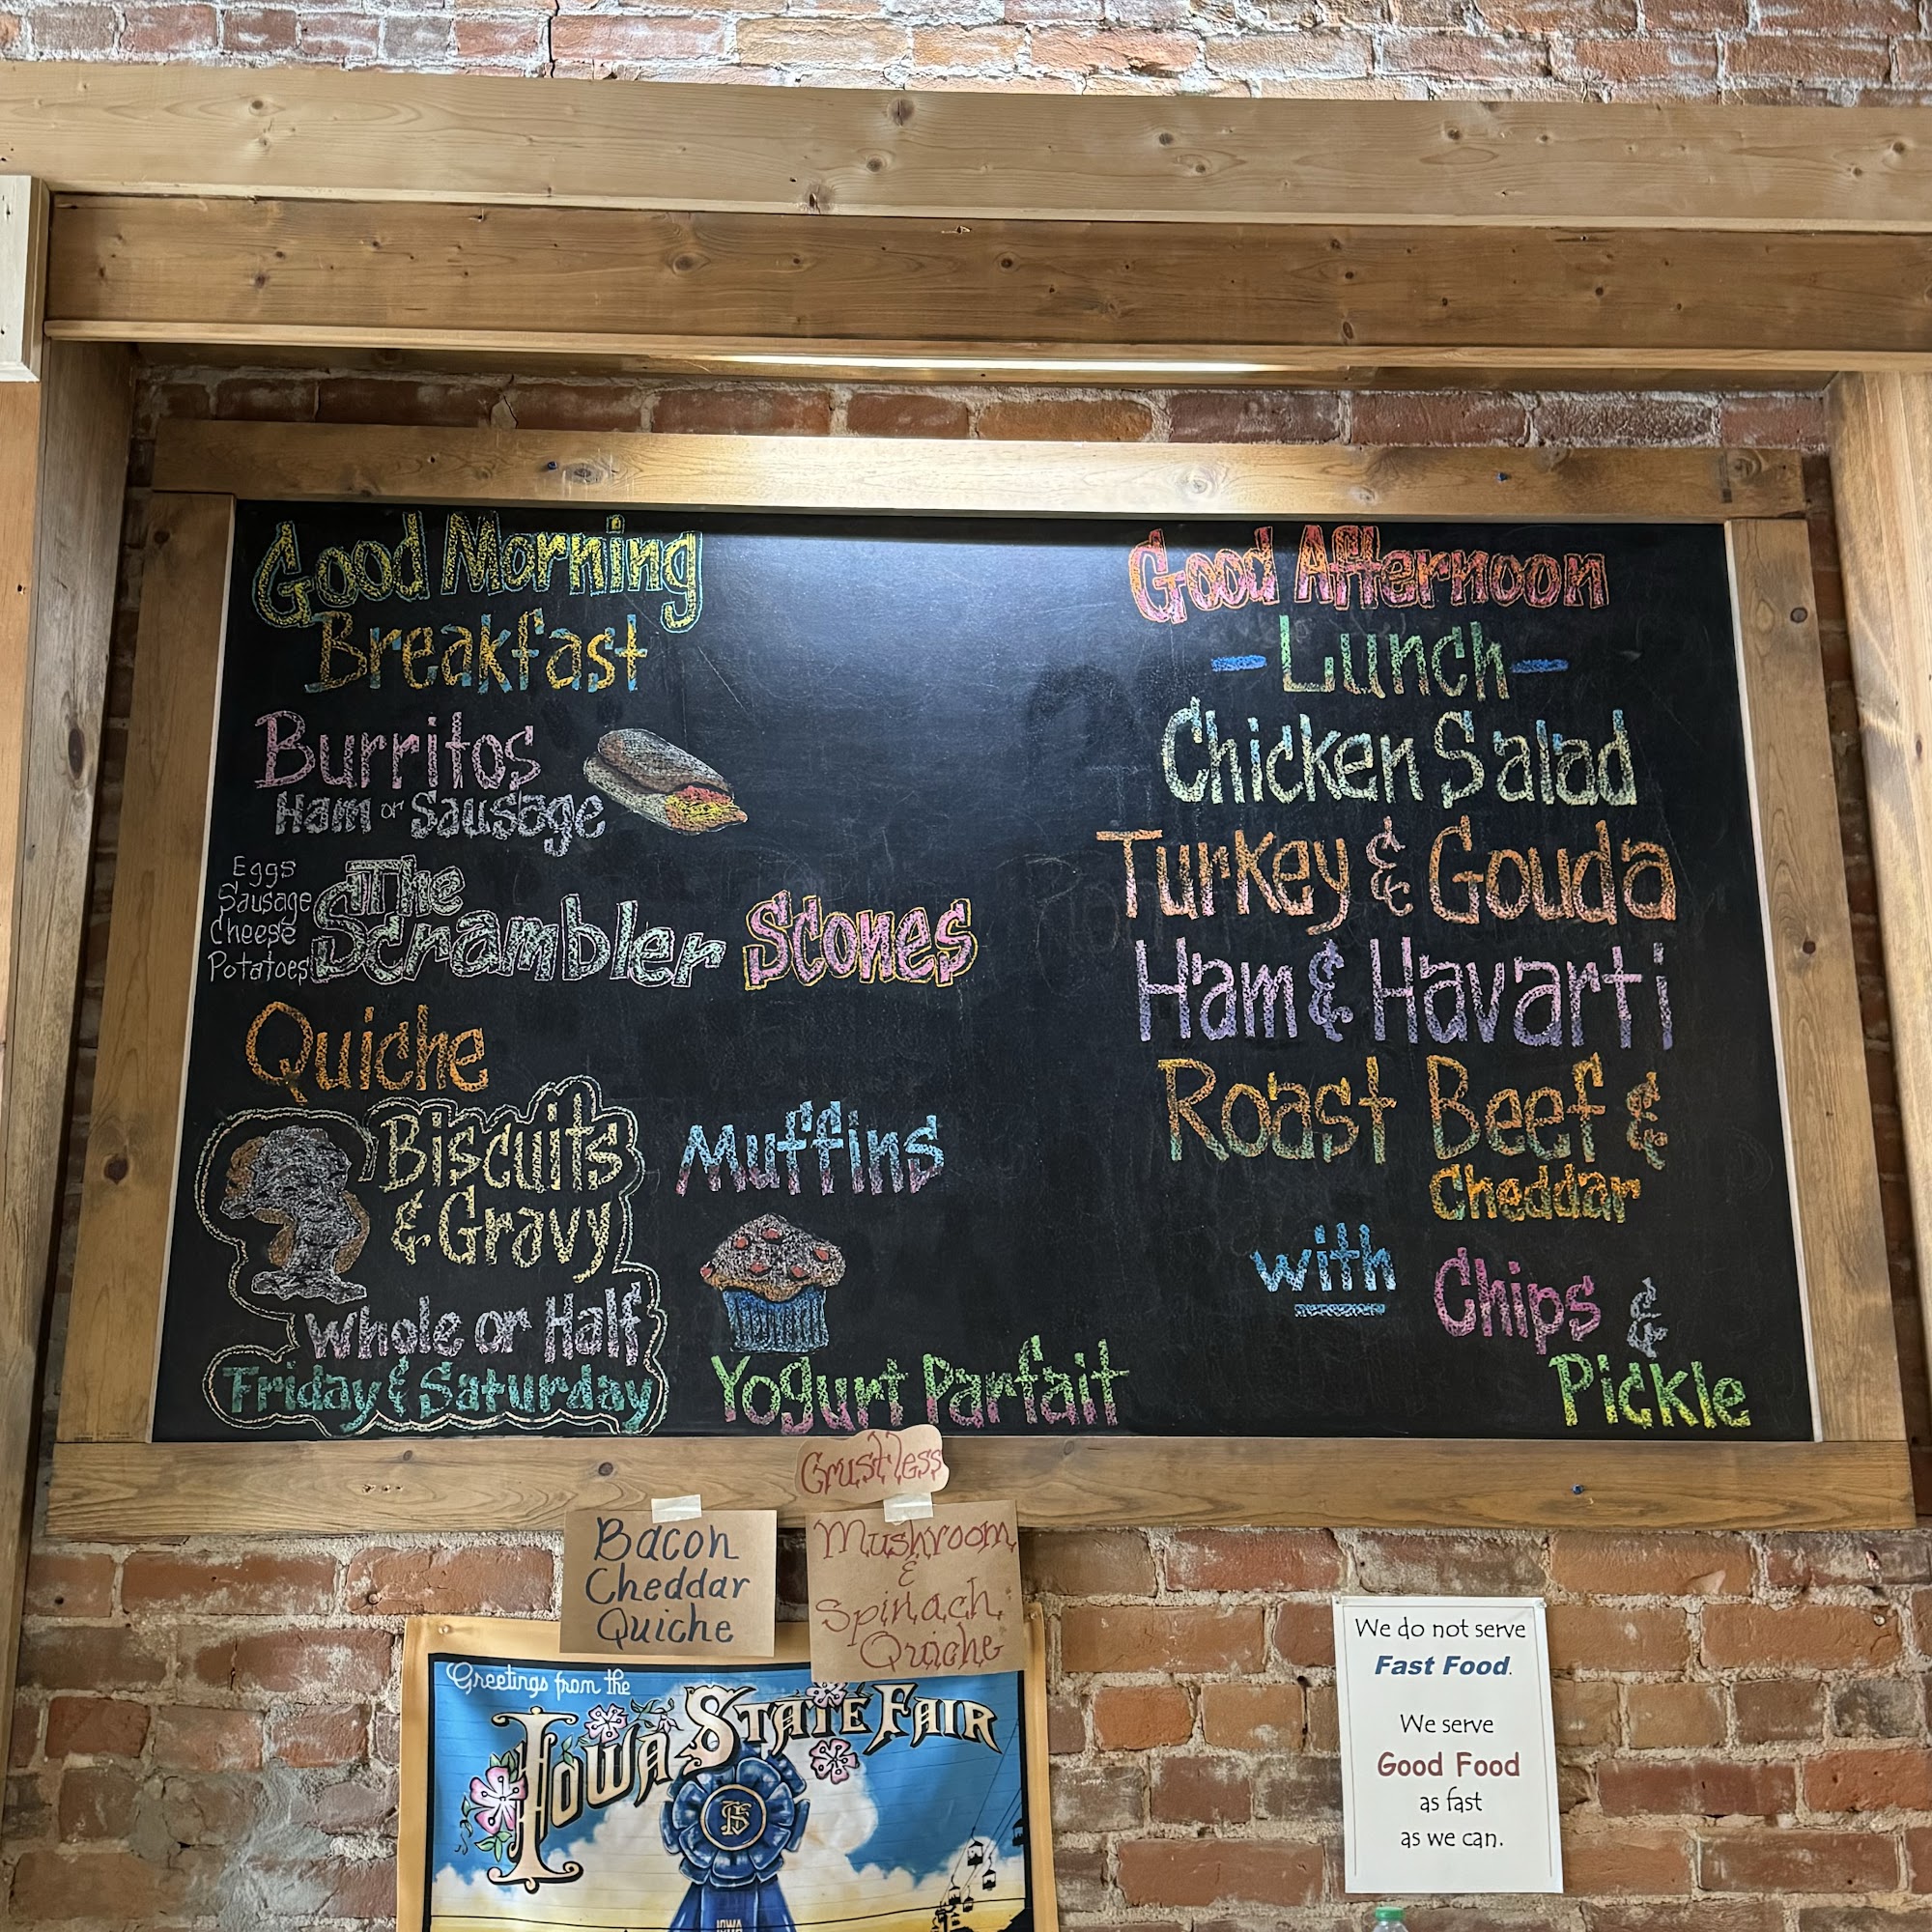 Good Morning
Breakfast
Burritos
Ham or Sausage
Eggs
Sausage
Cheese
Potatoes
The
Scrambler
Scones
Quiche
Biscuits
& Gravy
Whole or Half
Friday & Saturday
Muffins
Yogurt Parfait
Good Afternoon
-Lunch-
Chicken Salad
Turkey & Gouda
Ham & Havarti
Roast Beef &
Cheddar
with
Chips &
Pickle
Crustless
Bacon
Cheddar
Quiche
Mushroom
&
Spinach
Quiche
Greetings from the
Iowa State Fair
IOWA
We do not serve
Fast Food.
We serve
Good Food
as fast
as we can.